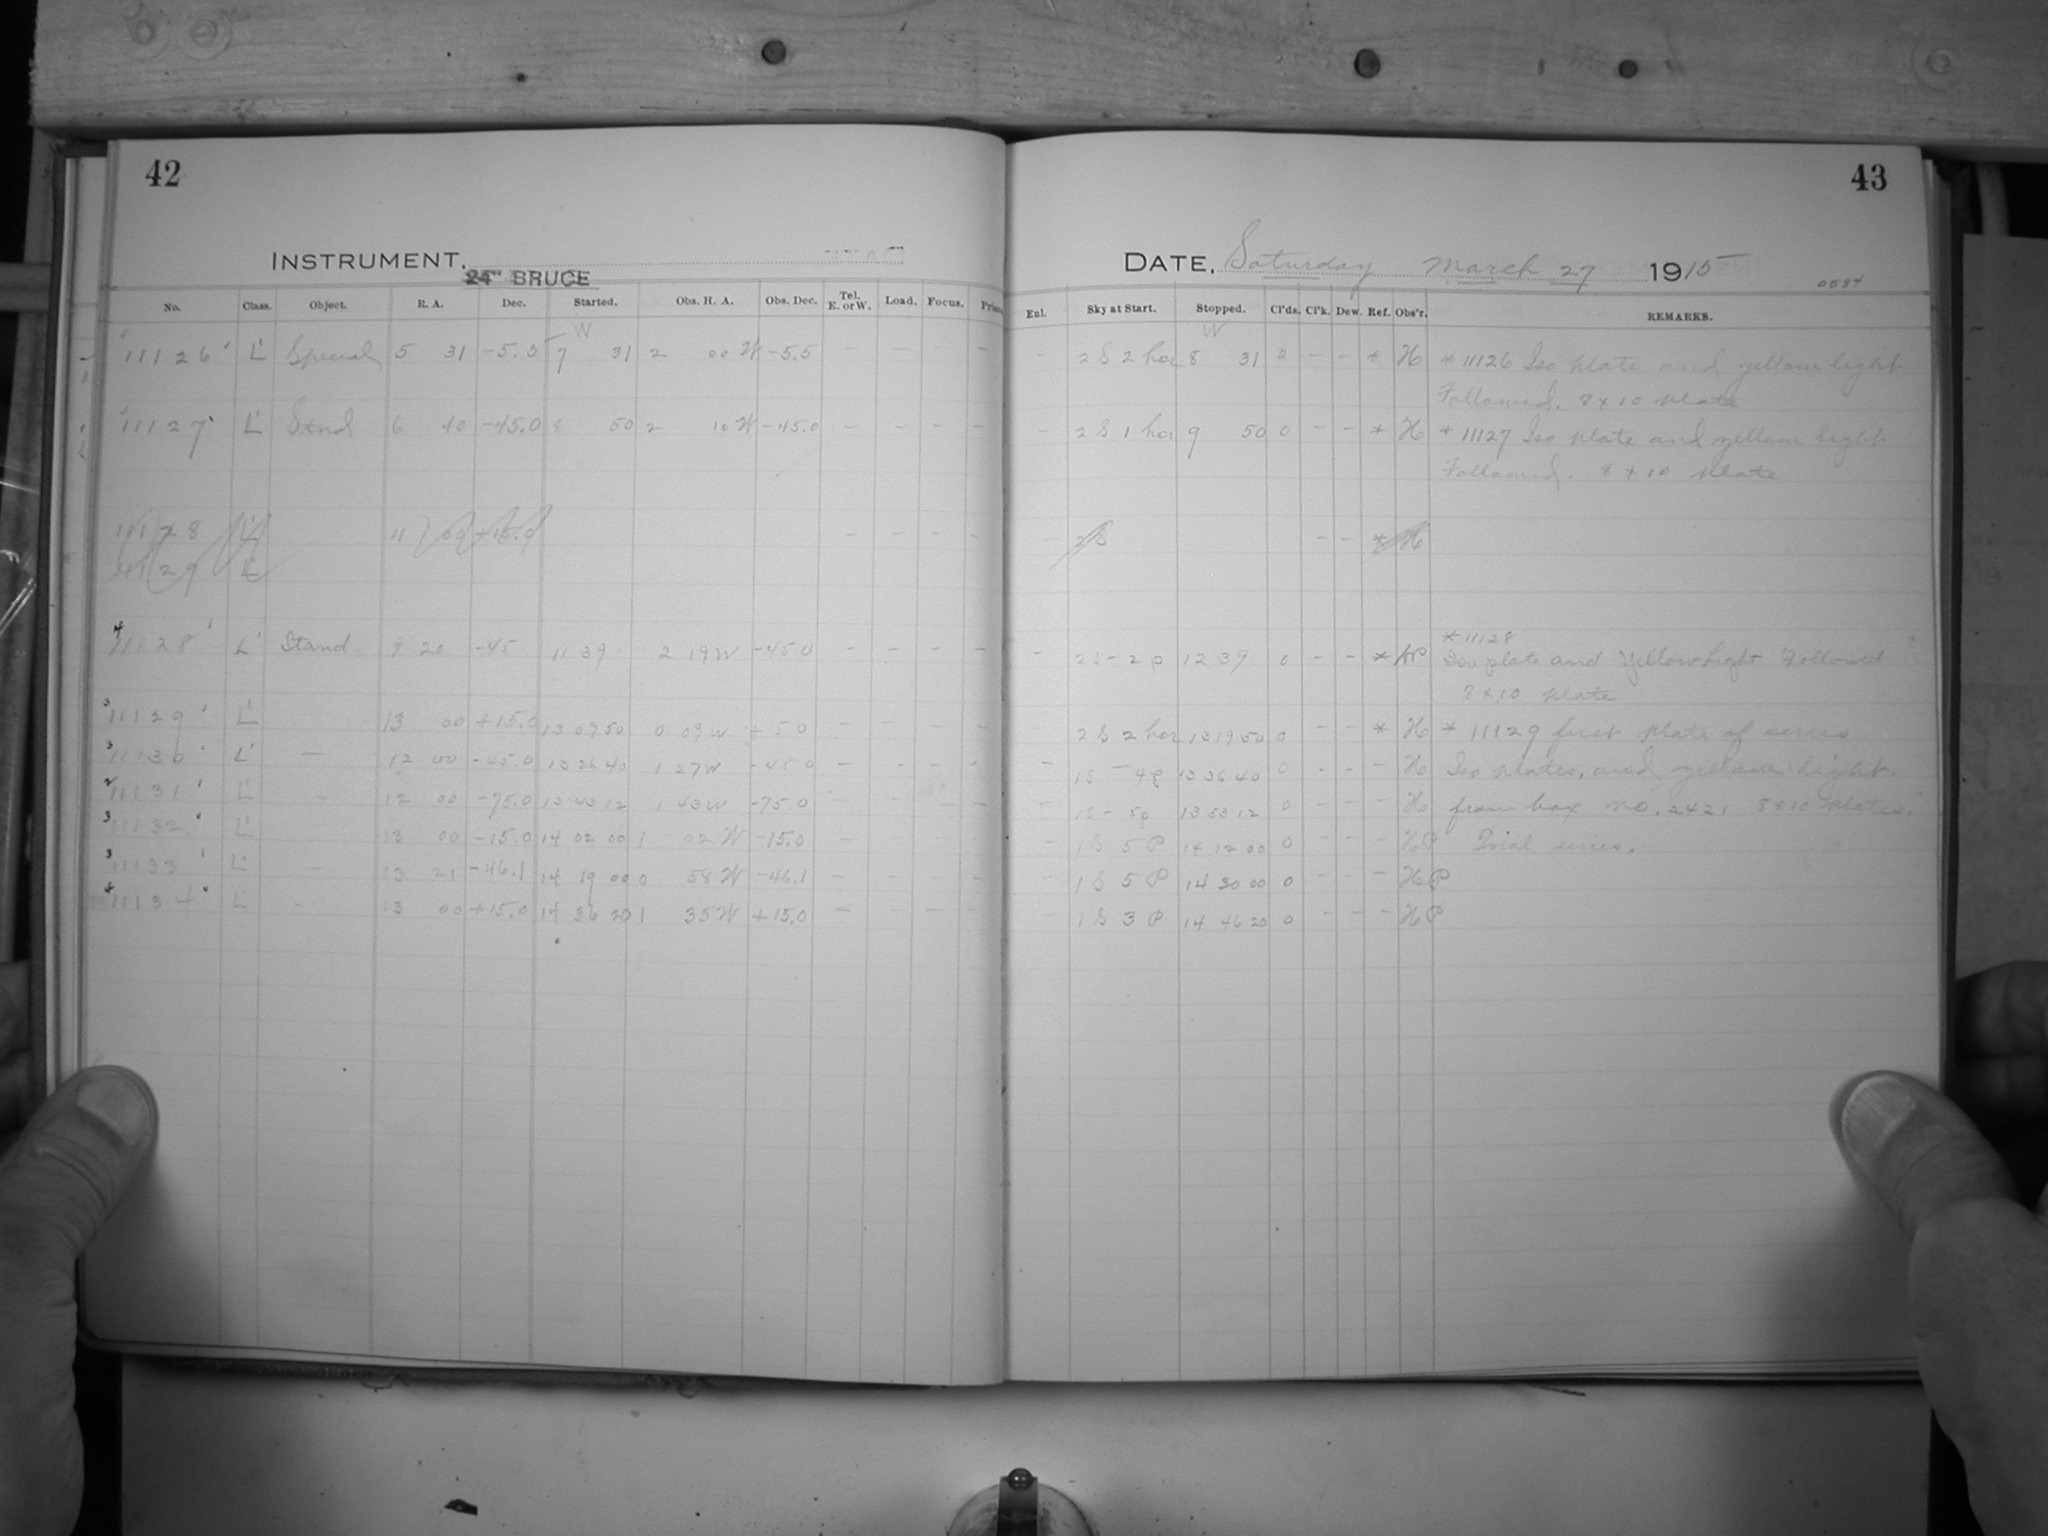 42
INSTRUMENT.
24" BRUCE
No. Class. Object. R. A. Dec. Started. Obs. H. A. Obs. Dec. Tel. E. or W. Load. Focus.
W
11126 L' Special 5 31 -5.5 7 31 2 00 W -5.5 - - - -
11127 L' Stnd 6 40 -45.0 50 2 10 W -45.0 - - - -
11128 L' 11 - - - -
11129 L'
11128 L' Stand 9 20 -45 11 39 2 19 W -45 0 - - - -
11129 L' 13 00 +15.0 13 09 50 0 09 W - - - -
11130 L' - 12 00 -45.0 13 26 40 1 27 W -45 0 - - - -
11131 L' - 12 00 -75.0 13 43 12 1 43 W -75.0 - - - -
11132 L' 13 00 -15.0 14 02 00 1 02 W -15.0 - - - -
11133 L' - 13 21 -46.1 14 19 00 0 58 W -46.1 - - - -
11134 L' - 13 00 +15.0 14 36 20 1 35 W +15.0 - - - -
43
DATE, Saturday March 27 1915
0584
Enl. Sky at Start. Stopped. Cl'ds. Cl'k. Dew. Ref. Obs'r. REMARKS.
W
- 2 S 2 hor 8 31 0 - - * H * 11126 Iso plate and yellow light
Followed. 8 x 10 plate
- 2 S 1 hor 9 50 0 - - * H * 11127 Iso plate and yellow light
Followed. 8 x 10 plate
- 2 S - - * H
* 11128
- 2 S - 2 p 12 39 0 - - * HP Iso plate and Yellow Light Followed
8 x 10 plate
2 S 2 hor 13 19 50 0 - - * H * 11129 first plate of series
- 1 S - 4 p 13 36 40 0 - - - H Iso plates, and yellow light.
- 1 S - 5 p 13 53 12 0 - - - H from box no. 2421 8 x 10 plates.
- 1 S 5 P 14 12 00 0 - - - HP Trial series.
- 1 S 5 P 14 30 00 0 - - - HP
- 1 S 3 P 14 46 20 0 - - - HP